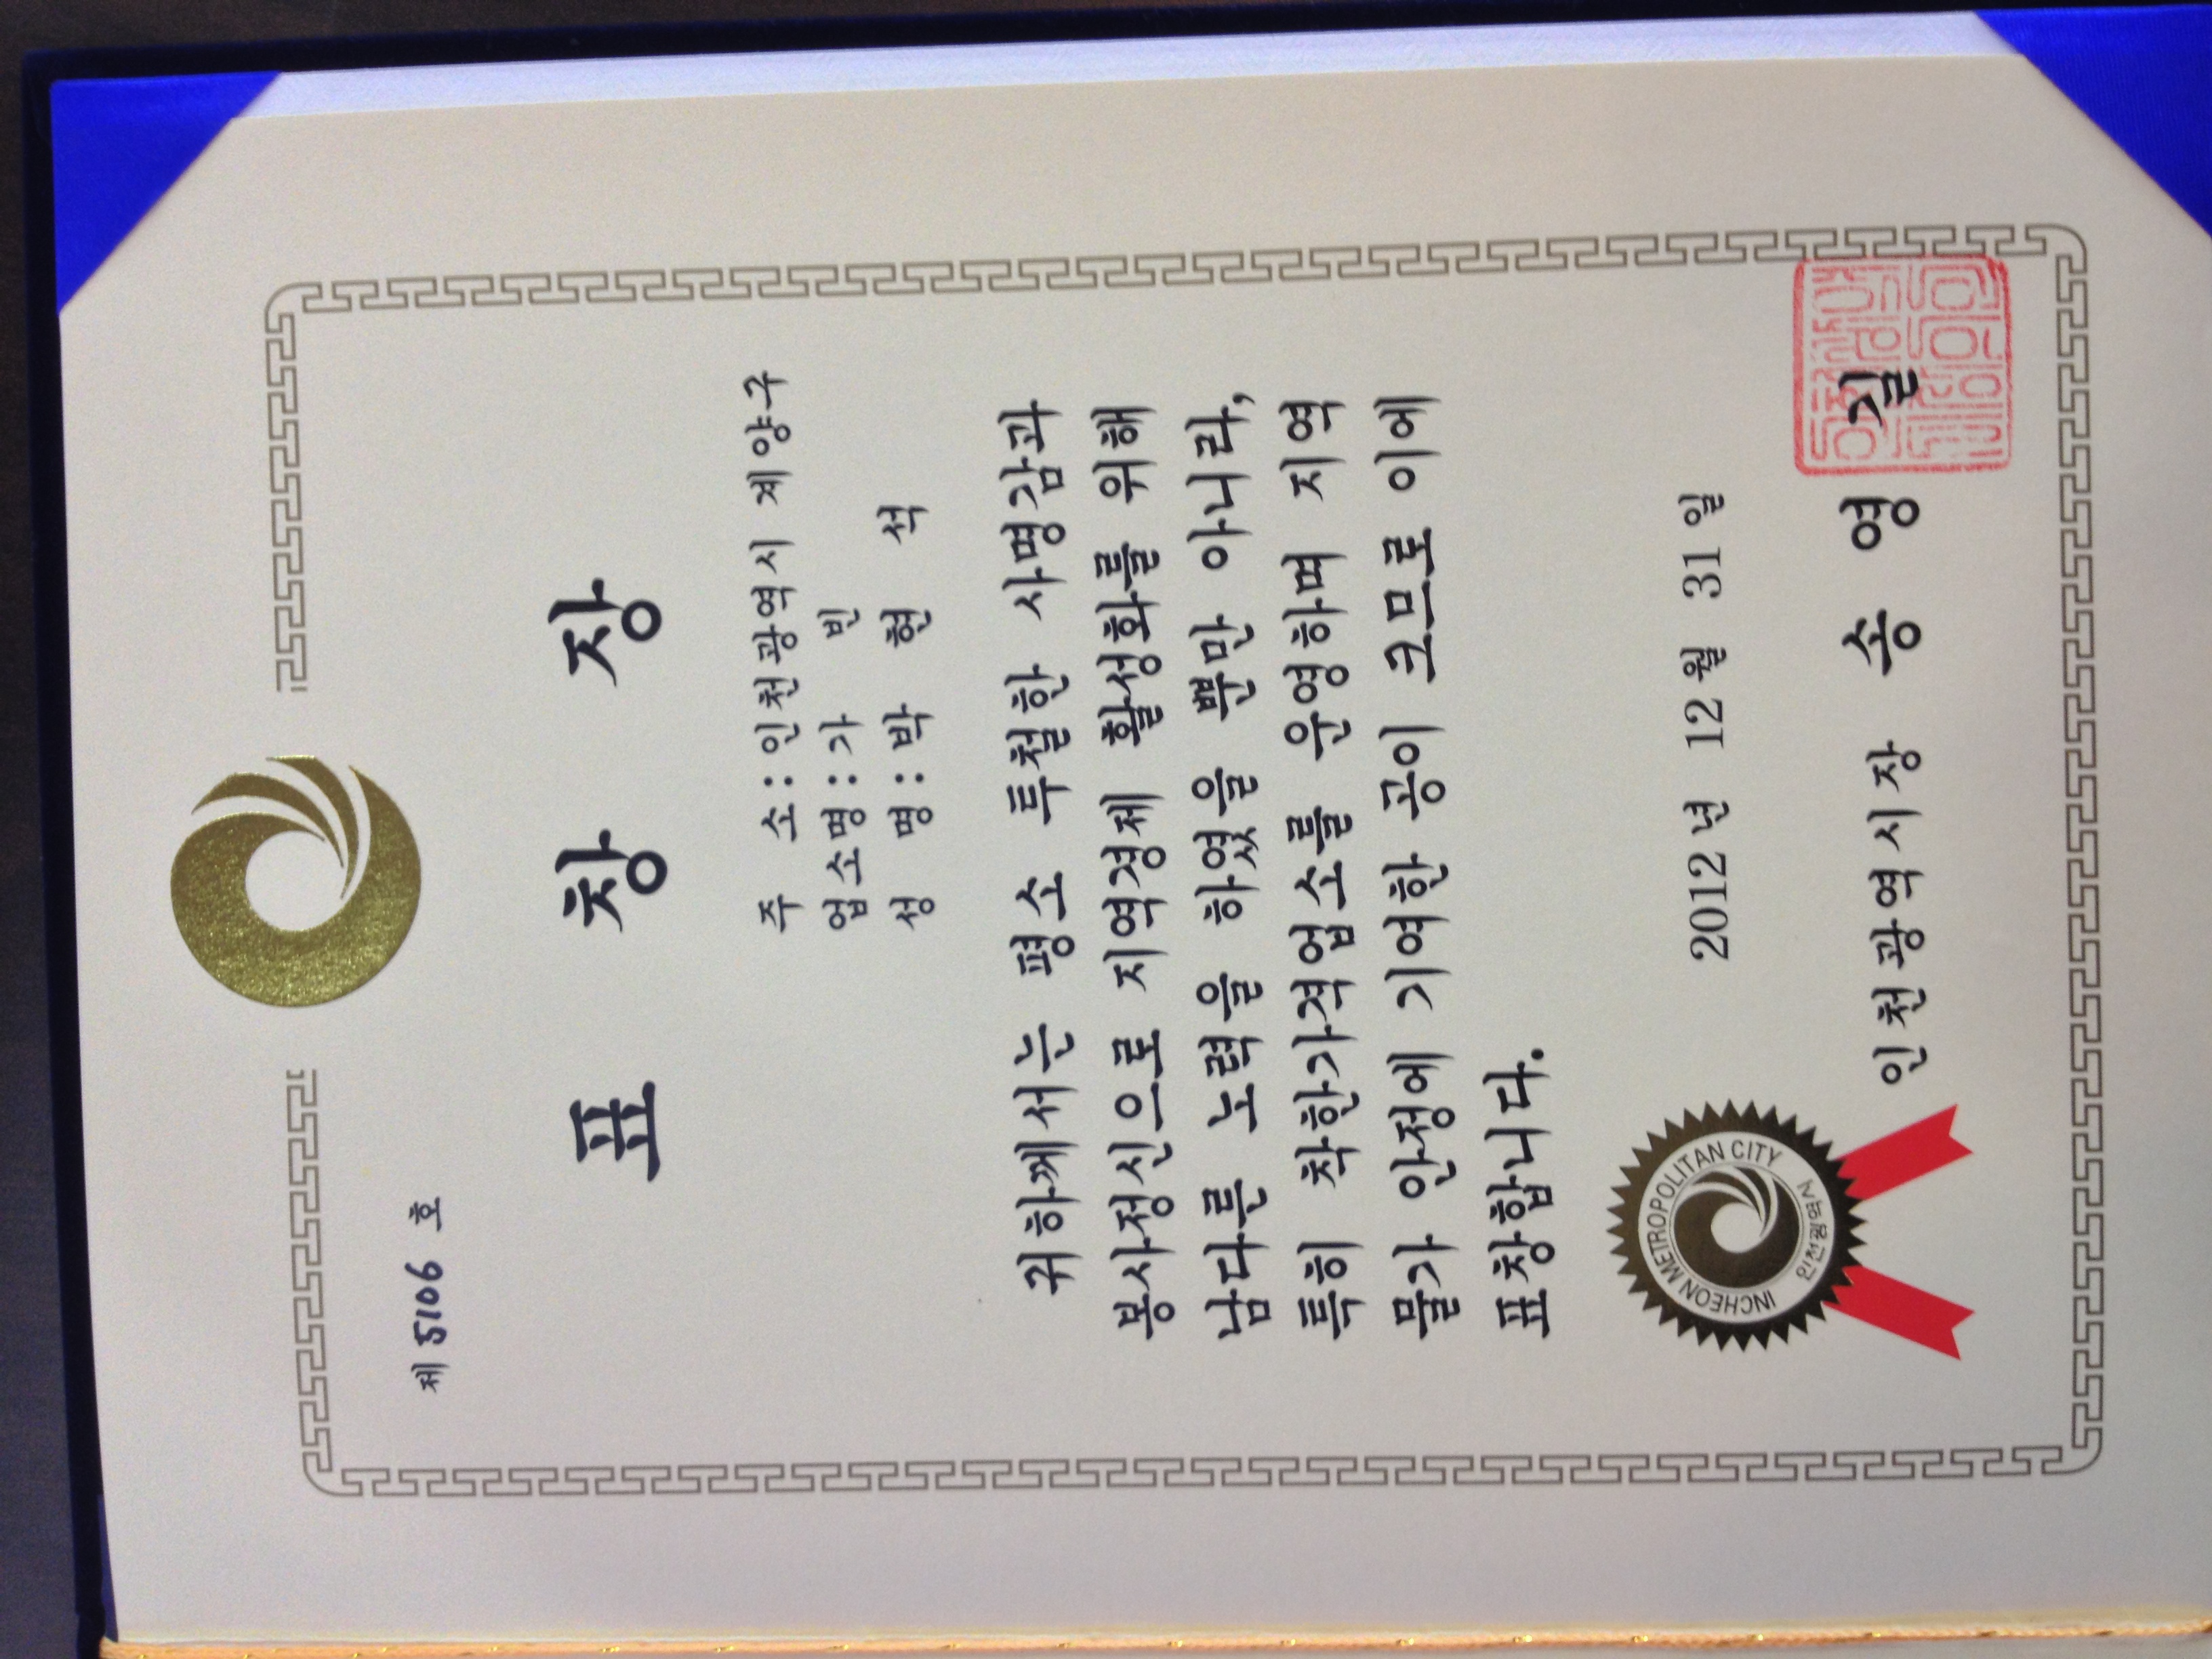 제 5106 호
표 창 장
주 소 : 인천광역시 계양구
업소명 : 가 빈
성 명 : 박 현 석
귀하께서는 평소 투철한 사명감과
봉사정신으로 지역경제 활성화를 위해
남다른 노력을 하였을 뿐만 아니라,
특히 착한가격업소를 운영하며 지역
물가 안정에 기여한 공이 크므로 이에
표창합니다.
2012년 12월 31일
인천광역시장 송 영 길
INCHEON METROPOLITAN CITY
인천광역시